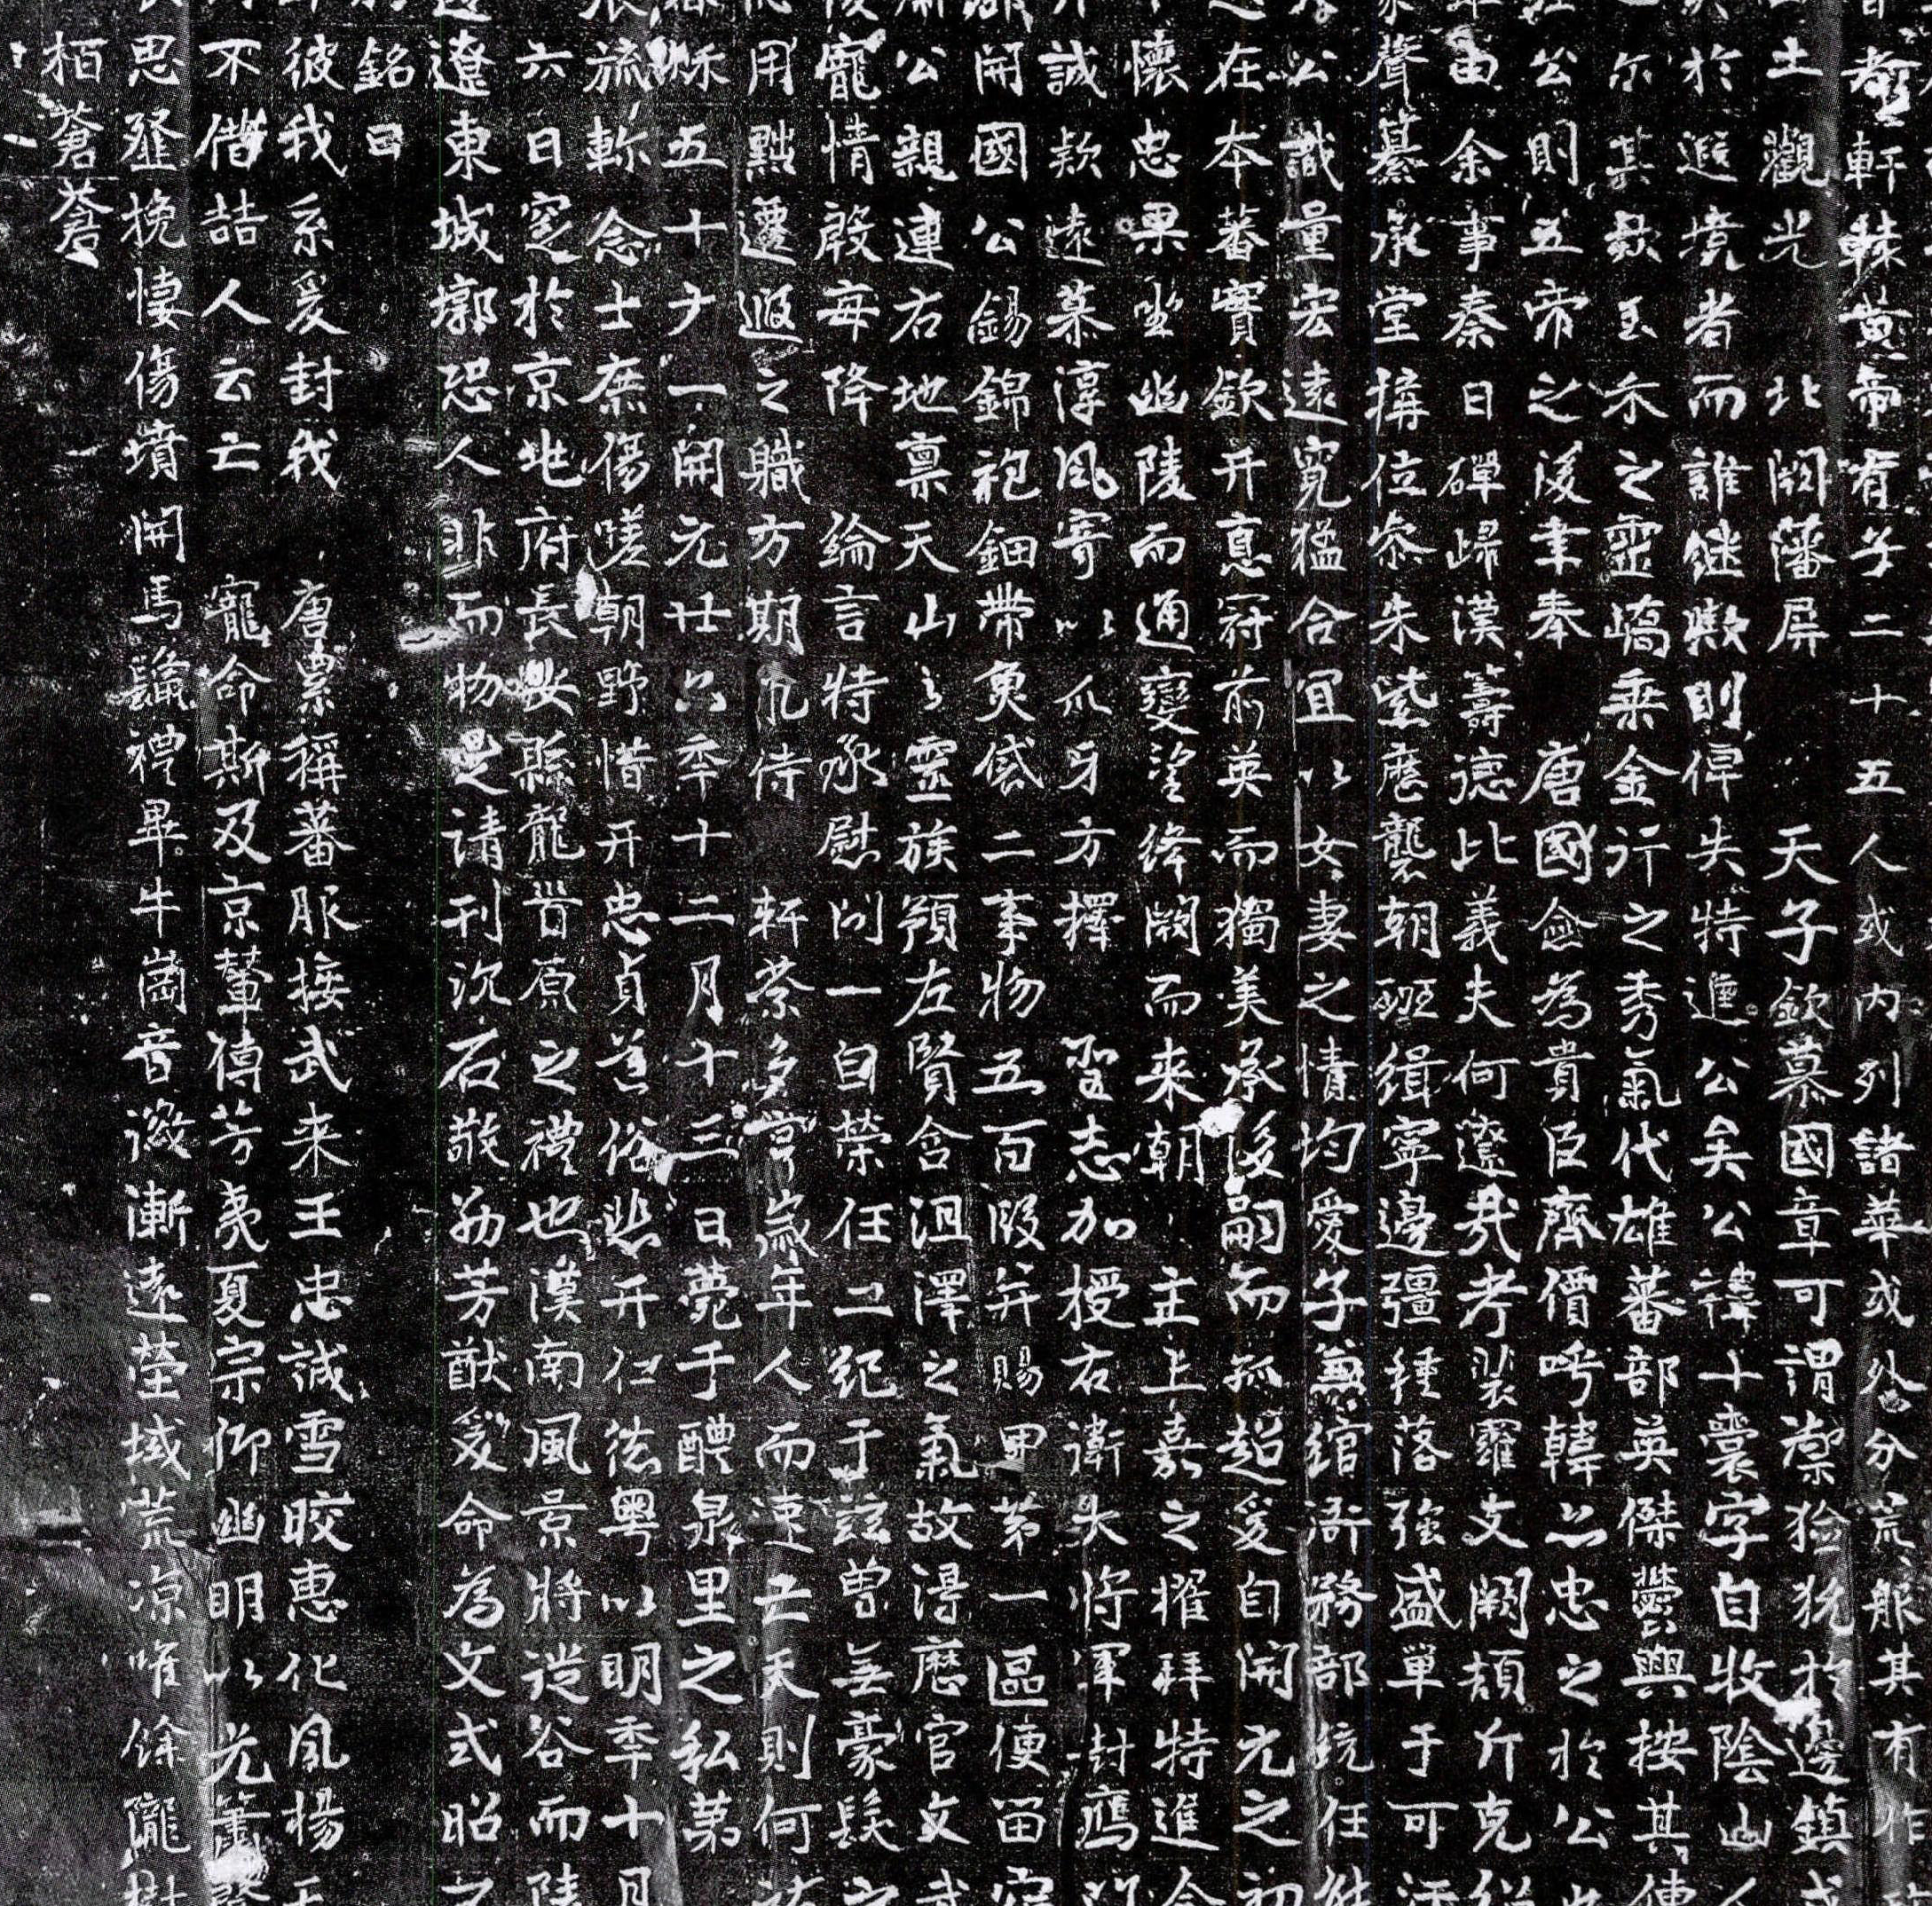 昔軒轅黄帝有子二十五人或内列諸華或外分荒服其有
土觀光 北闕藩屏 天子欽慕國章可謂禦獫狁於邊鎮
於遐境者而誰継歟則俾失特進公矣公諱十囊字自牧陰山人
尔其歃玉禾之靈嶠乘金行之秀氣代雄蕃部英傑疊興按其傳
公則五帝之後聿奉 唐國僉為貴臣齊價呼韓亦忠之於公
由余事秦日磾歸漢籌德比義夫何遼哉考裴羅支闕頡斤克
聲纂承堂構位叅朱紫歷襲朝班緝寧邊疆種落強盛單于可汗
公識量宏遠寬猛合宜以女妻之情均愛子兼綰衙務部統任
在本蕃實欽并憙冠前英而獨美承後嗣而孤超爰自開元之初
懷忠果坐幽陵而通變望絳闕而来朝 主上嘉之擢拜特進
誠欵遠慕淳風寄以爪牙方擇 聖志加授右衛大將軍封鴈
開國公錫錦袍鈿帶魚袋二事物五百段并賜甲第一區便留宿
公親連右地禀天山之靈族預左賢含沮澤之氣故得歷官文武
寵情殷每降 綸言特承慰問一自榮任二紀于兹曽無豪髮之
用黜遷遐之職方期九侍 軒禁多营歲年人而速亡天則何
五十有一開元廿六年十二月十三日薨于醴泉里之私第
旒軫念士庶傷嗟朝野惜并忠貞蕃俗悲并仁德粤以明年十月
六日窆於京兆府長安縣龍首原之禮也漢南風景將從谷而
遼東城墎恐人非而物是請刊沉石敬勒芳猷爰命為文式昭
銘曰
彼我系爰封我 唐累稱蕃服接武来王忠誠雪皎惠化風揚
不借喆人云亡 寵命斯及京輦傳芳夷夏宗仰幽明以光簫
思發挽悽傷墳開馬鬛禮畢牛崗音徽漸遠塋域荒凉唯餘隴樹
栢蒼蒼